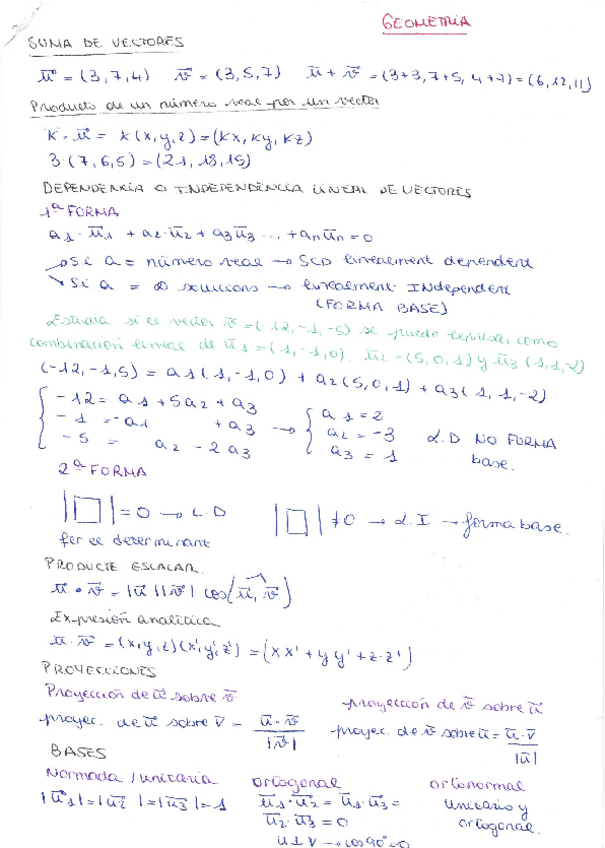 GEOMETRIA
SUMA DE VECTORES
u⃗ = (3,7,4) v⃗ = (3,5,7) u⃗ + v⃗ = (3+3, 7+5, 4+7) = (6,12,11)
Producto de un número real por un vector
K · u⃗ = K(x,y,z) = (Kx, Ky, Kz)
3·(7,6,5) = (21, 18, 15)
DEPENDENCIA O INDEPENDENCIA LINEAL DE VECTORES
1ª FORMA
a1·u⃗1 + a2·u⃗2 + a3u⃗3 ... + anu⃗n = 0
→ Si a = número real → SCD linealment dependent
↘ Si a = ∞ solucions → linealment INdependent
(FORMA BASE)
Estudia si el vector v⃗ = (-12,-1,-5) se puede expresar como
combinación lineal de u⃗1 = (1,-1,0), u⃗2 = (5,0,1) y u⃗3 (1,1,-2)
(-12,-1,5) = a1(1,-1,0) + a2(5,0,1) + a3(1,1,-2)
-12 = a1 + 5a2 + a3 a1 = 2
-1 = -a1 + a3 → a2 = -3 L.D NO FORMA
-5 = a2 - 2a3 a3 = 1 base.
2ª FORMA
|□| = 0 → L.D |□| ≠ 0 → L.I → forma base.
fer el determinant
PRODUCTE ESCALAR.
u⃗ · v⃗ = |u⃗||v⃗| cos(u⃗, v⃗)
Expresión analítica
u⃗·v⃗ = (x,y,z)(x',y',z') = (xx' + yy' + z·z')
PROYECCIONES
Proyección de u⃗ sobre v⃗ proyección de v⃗ sobre u⃗
proyec. de u⃗ sobre v⃗ = u⃗·v⃗ / |v⃗| proyec. de v⃗ sobre u⃗ = u⃗·v⃗ / |u⃗|
BASES
Normada / unitaria ortogonal ortonormal
|u⃗1| = |u⃗2| = |u⃗3| = 1 u⃗1·u⃗2 = u⃗1·u⃗3 = unitario y
u⃗2·u⃗3 = 0 ortogonal.
u⊥v → cos90°=0